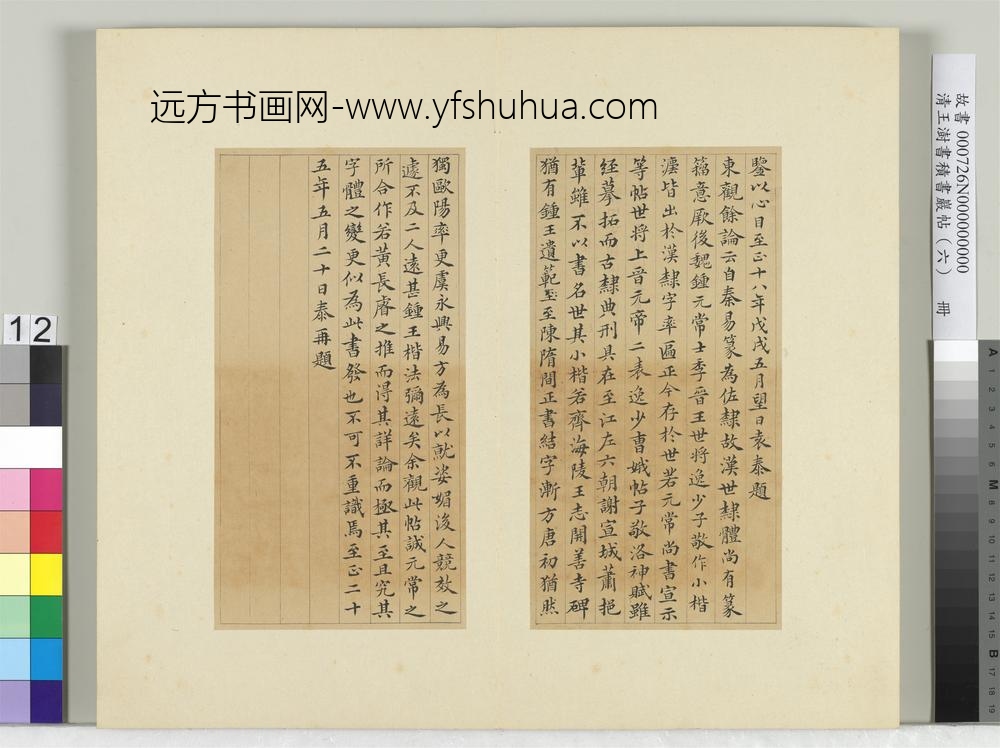 远方书画网-www.yfshuhua.com
鑒以心目至正十八年戊戌五月望日袁泰題
東觀餘論云自秦易篆為佐隸故漢世隸體尚有篆
籀意厥後魏鍾元常士季晉王世將逸少子敬作小楷
灋皆出於漢隸字率匾正今存於世若元常尚書宣示
等帖世將上晉元帝二表逸少曹娥帖子敬洛神賦雖
經摹拓而古隸典刑具在至江左六朝謝宣城蕭挹
輩雖不以書名世其小楷若齊海陵王志開善寺碑
猶有鍾王遺範至陳隋間正書結字漸方唐初猶然
獨歐陽率更虞永興易方為長以就姿媚後人競效之
遽不及二人遠甚鍾王楷法彌遠矣余觀此帖誠元常之
所合作若黃長睿之推而得其詳論而極其至且究其
字體之變更似為此書發也不可不重識焉至正二十
五年五月二十日泰再題
故書 000726N000000000
清王澍書積書巖帖(六) 冊
12
A 1 2 3 4 5 6 M 8 9 10 11 12 13 14 15 B 17 18 19